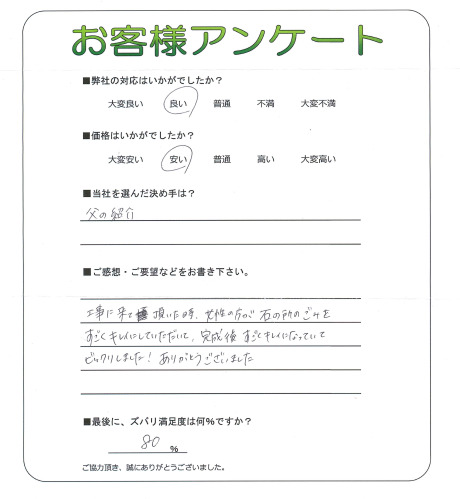 お客様アンケート
■弊社の対応はいかがでしたか?
大変良い 良い 普通 不満 大変不満
■価格はいかがでしたか?
大変安い 安い 普通 高い 大変高い
■当社を選んだ決め手は?
父の紹介
■ご感想・ご要望などをお書き下さい。
工事に来て頂いた時、女性の方が石の所のごみを
すごくキレイにしていただいて、完成後すごくキレイになっていて
ビックリしました!ありがとうございました
■最後に、ズバリ満足度は何%ですか?
80 %
ご協力頂き、誠にありがとうございました。